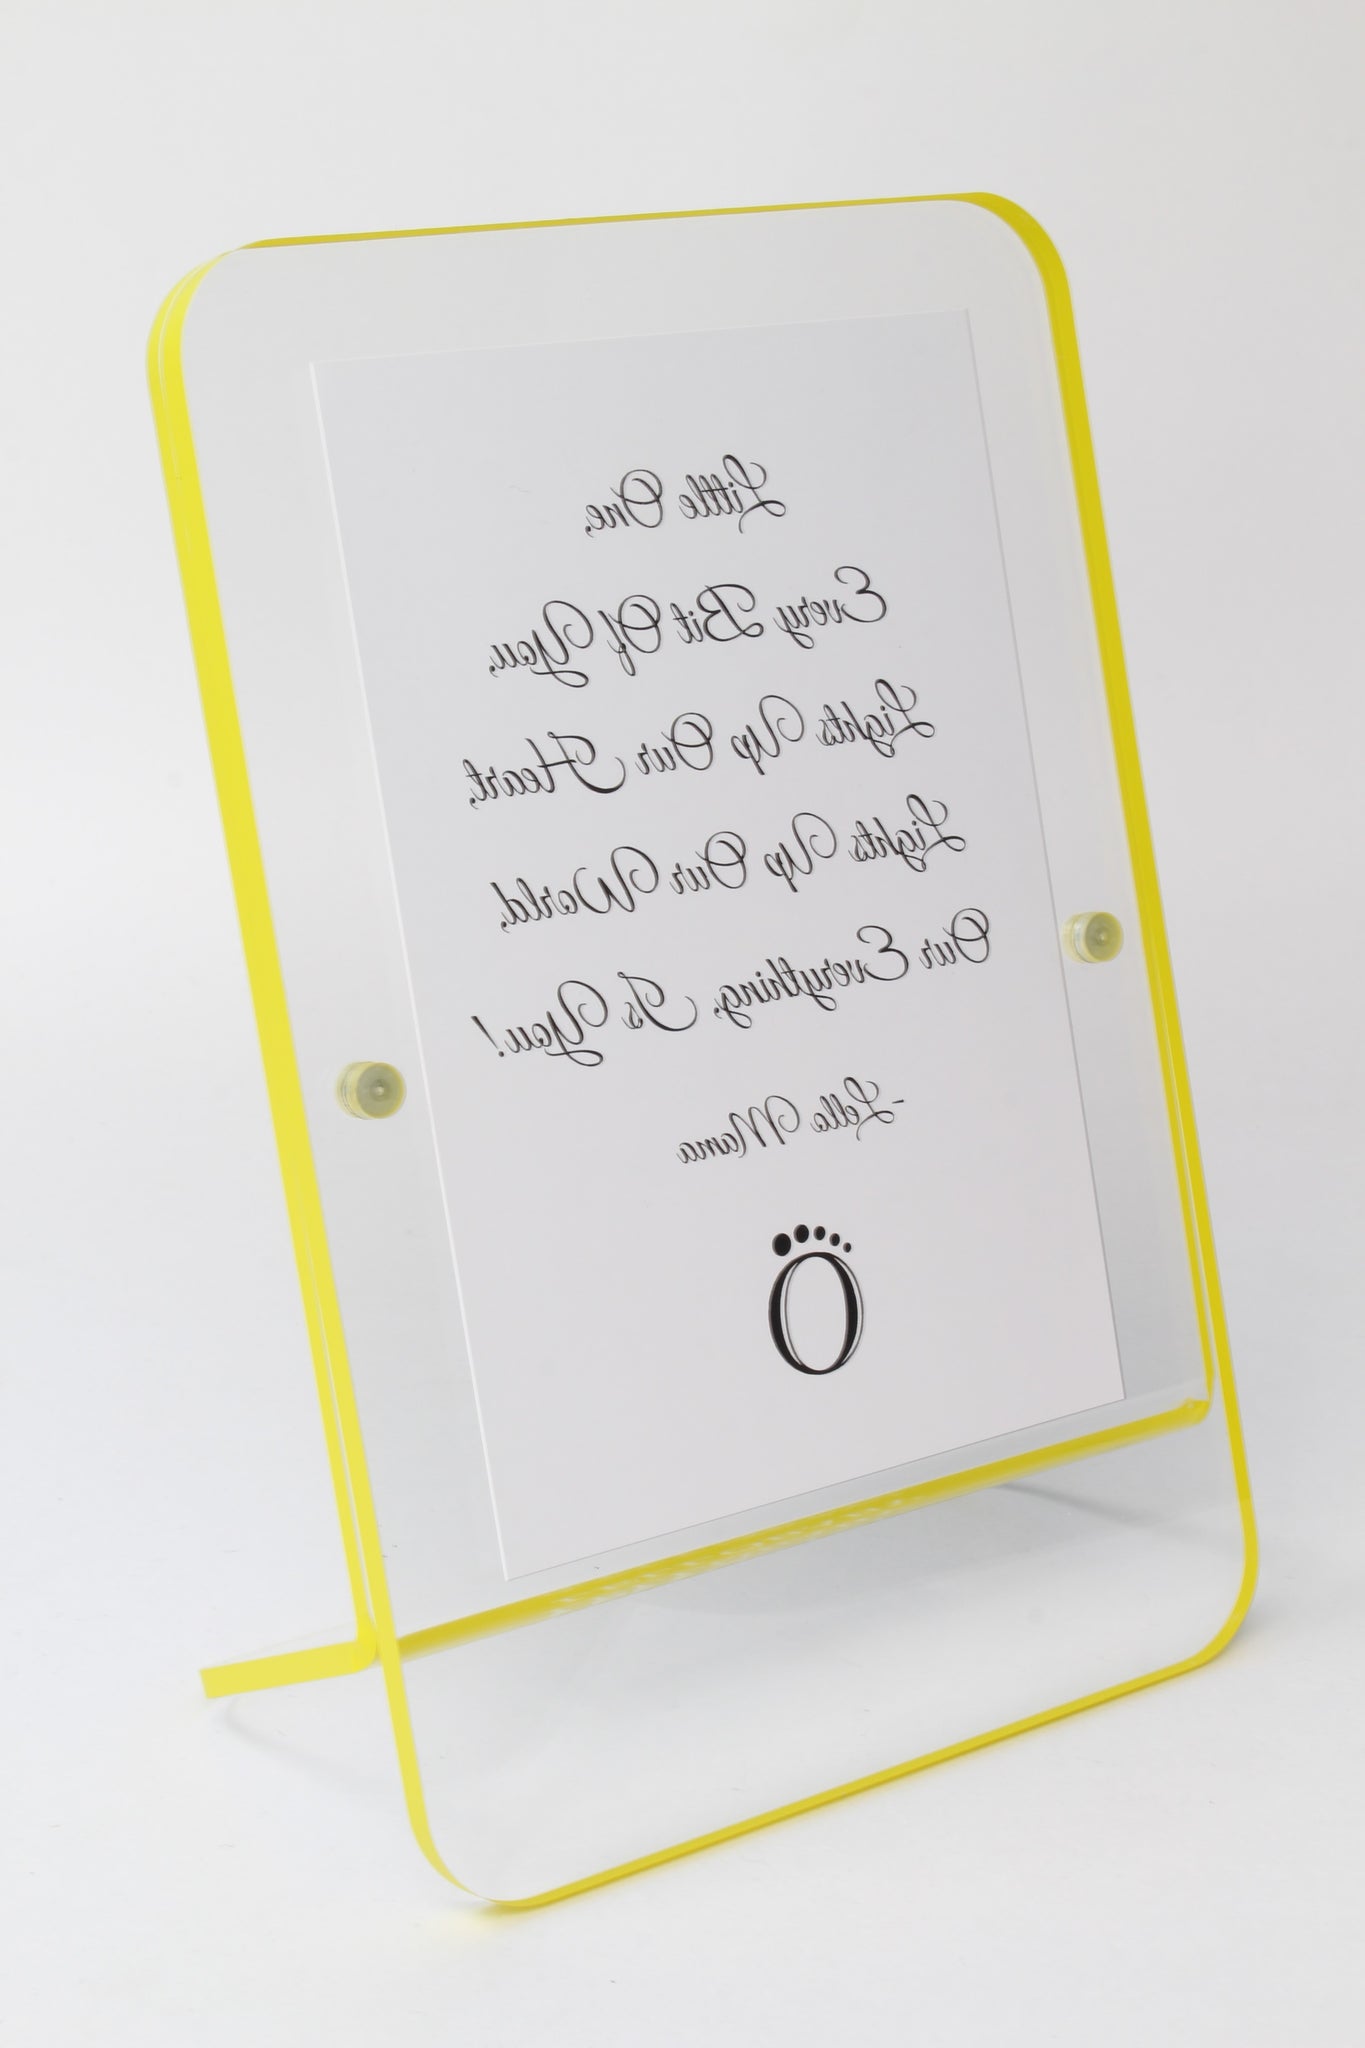 Little One,
Every Bit Of You,
Lights Up Our Heart,
Lights Up Our World,
Our Everything, Is You!
-Lella Mama
O